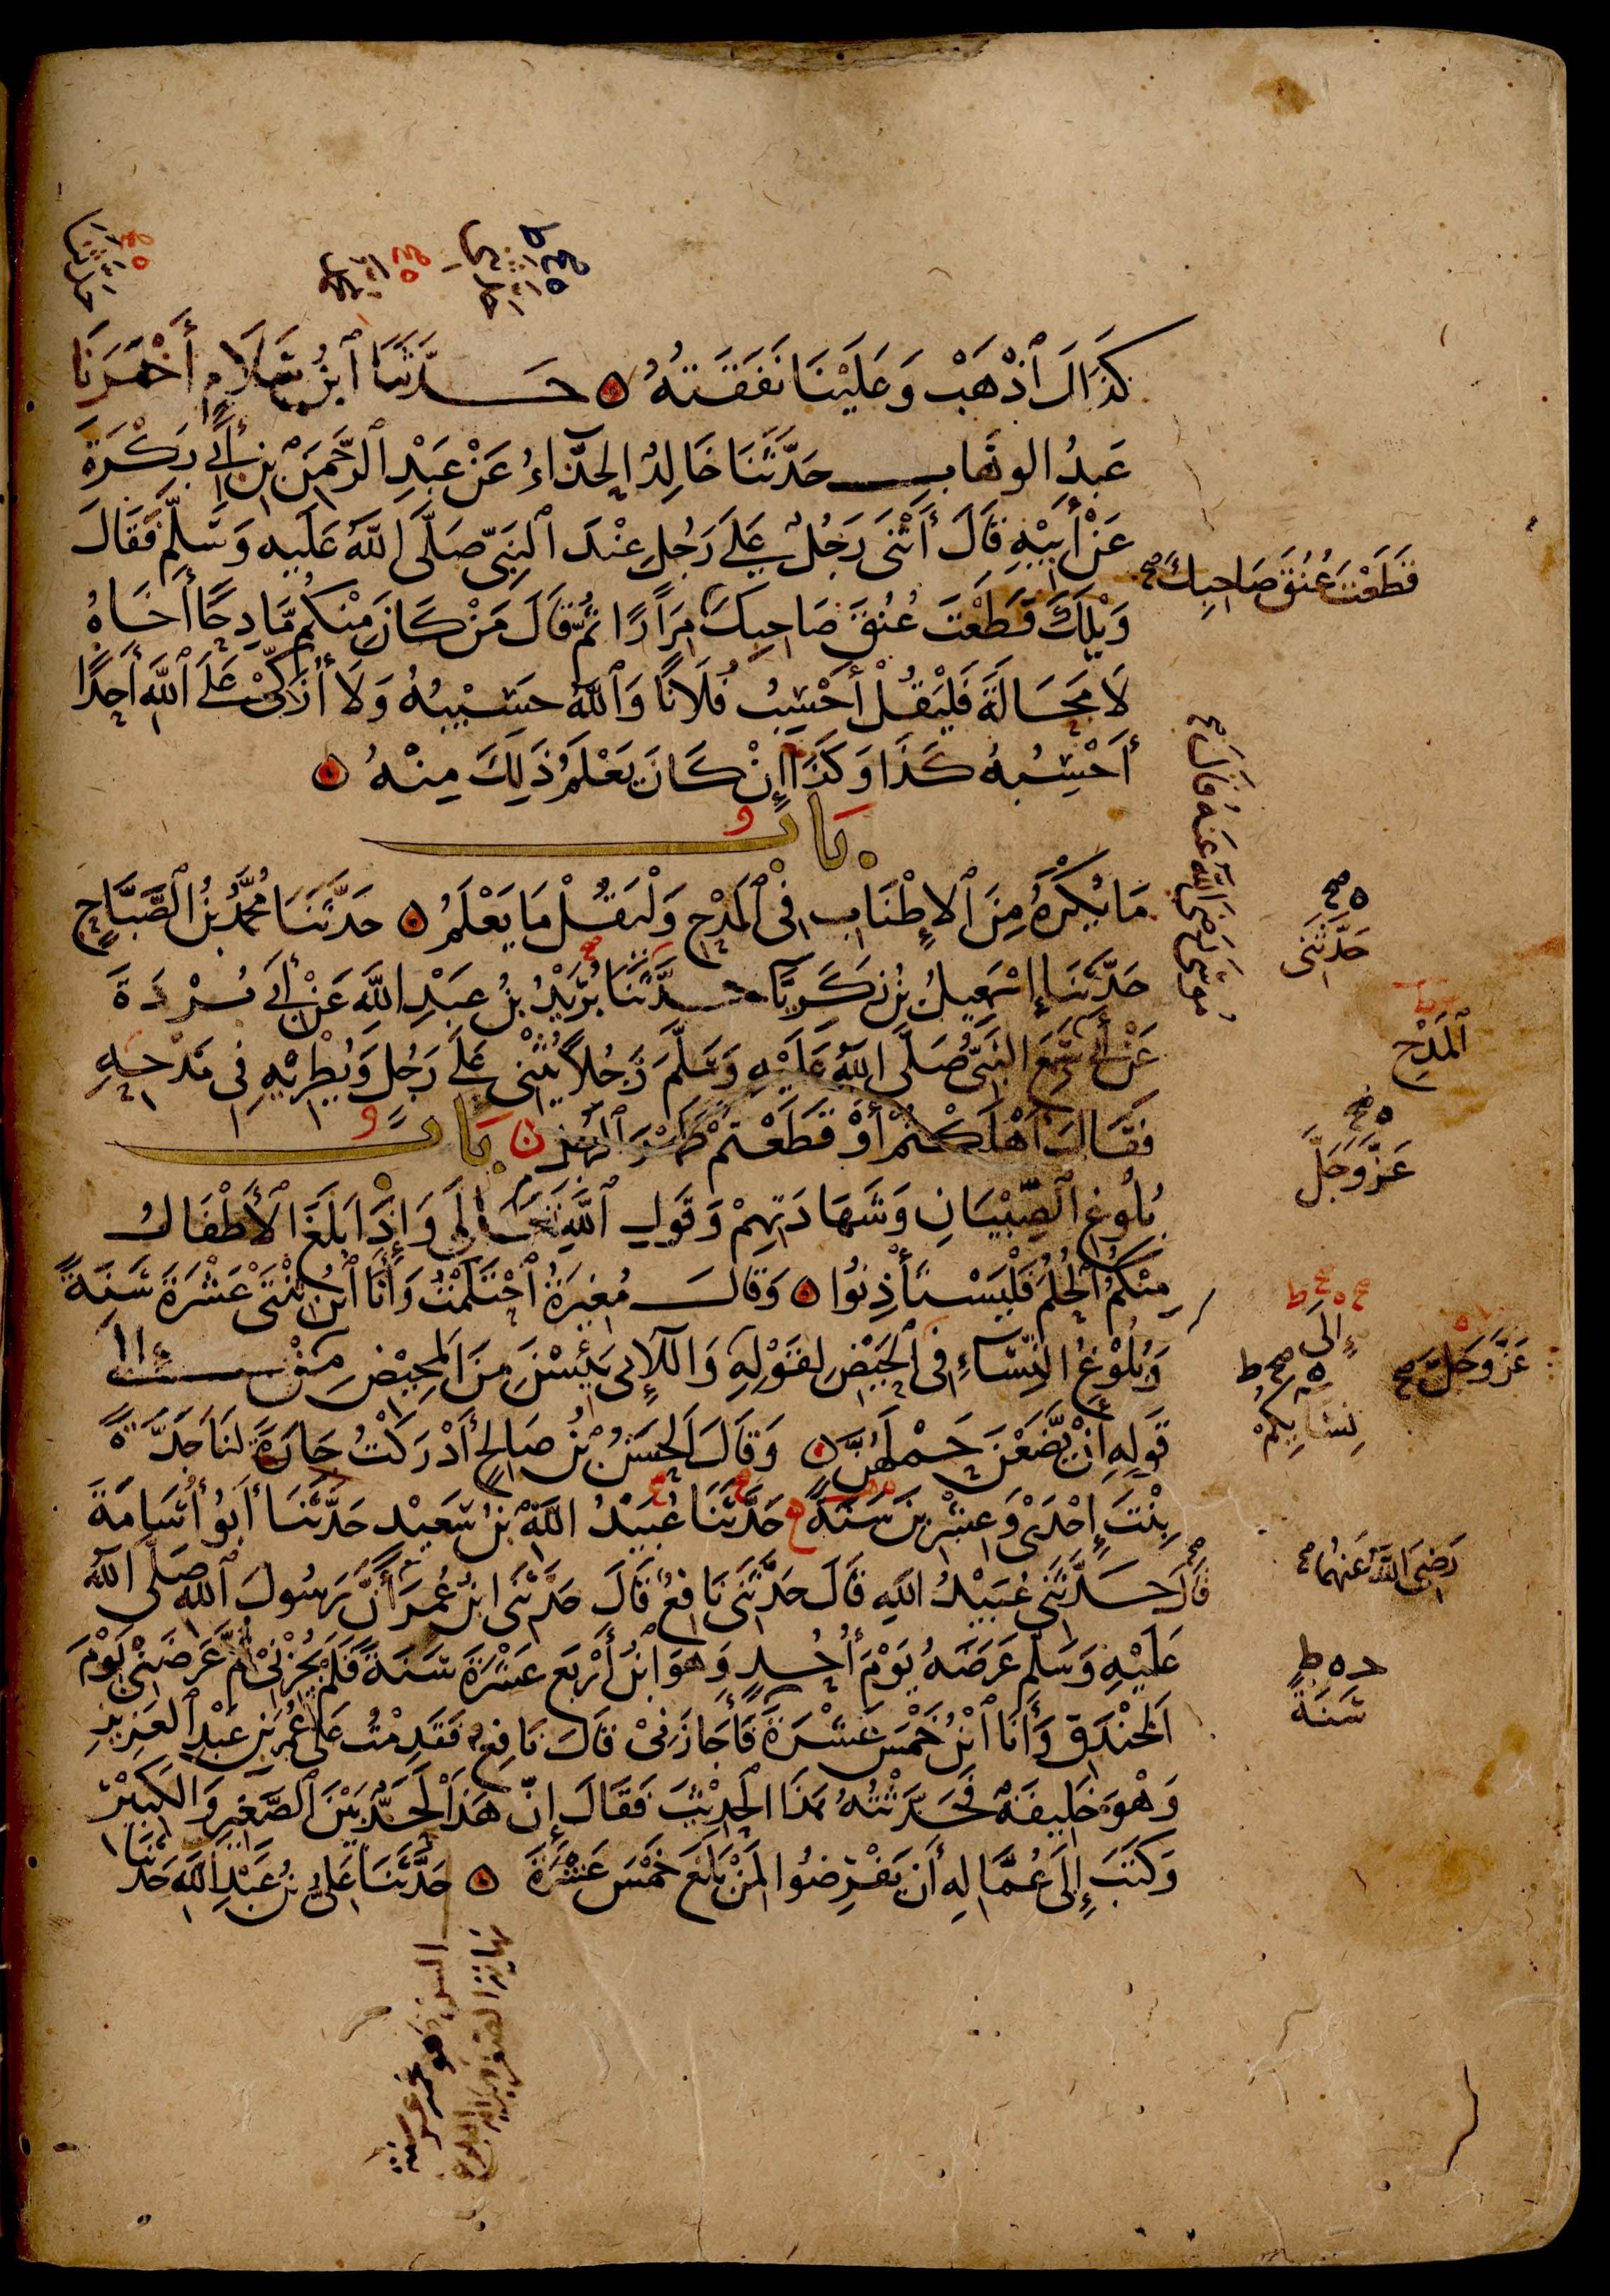 كَذَاكَ ٱذْهَبْ وَعَلَيْنَا نَفَقَتُهُ ۞ حَدَّثَنَا ٱبْنُ سَلَامٍ أَخْبَرَنَا
عَبْدُ الوَهَّابِ حَدَّثَنَا خَالِدٌ الحَذَّاءُ عَنْ عَبْدِ ٱلرَّحْمَنِ بْنِ أَبِي بَكْرَةَ
عَنْ أَبِيْهِ قَالَ أَثْنَى رَجُلٌ عَلَى رَجُلٍ عِنْدَ ٱلنَّبِيِّ صَلَّى اللَّهُ عَلَيهِ وَسَلَّمَ فَقَالَ
وَيْلَكَ قَطَعْتَ عُنُقَ صَاحِبِكَ مِرَارًا ثُمَّ قَالَ مَنْ كَانَ مِنْكُم مَّادِحًا أَخَاهُ
لَا مَحَالَةَ فَلْيَقُلْ أَحْسِبُ فُلَانًا وَٱللَّهُ حَسِيْبُهُ وَلَا أُزَكِّيْ عَلَى ٱللَّهِ أَحَدًا
أَحْسِبُهُ كَذَا وَكَذَا إِنْ كَانَ يَعْلَمُ ذَلِكَ مِنْهُ ۞
بَابُ
مَا يُكْرَهُ مِنَ ٱلإِطْنَابِ فِي ٱلمَدْحِ وَلْيَقُلْ مَا يَعْلَمُ ۞ حَدَّثَنَا مُحَمَّدُ بْنُ ٱلصَّبَّاحِ
حَدَّثَنَا إِسْمَعِيلُ بْنُ زَكَرِيَّا حَدَّثَنَا بُرَيْدُ بْنُ عَبْدِ اللَّهِ عَنْ أَبِي بُرْدَةَ
عَنْ أَبِي سَمِعَ النَّبِيُّ صَلَّى اللَّهُ عَلَيْهِ وَسَلَّمَ رَجُلًا يُثْنِيْ عَلَى رَجُلٍ وَيُطْرِيْهِ فِي مَدْحِهِ
فَقَالَ أَهْلَكْتُمْ أَوْ قَطَعْتُمْ ظَهْرَ ٱلرَّجُلِ ۞ بَابُ
بُلُوغِ ٱلصِّبْيَانِ وَشَهَادَتِهِمْ وَقَولِ ٱللَّهِ تَعَالَى وَإِذَا بَلَغَ ٱلأَطْفَالُ
مِنْكُمُ ٱلحُلُمَ فَلْيَسْتَأْذِنُوا ۞ وَقَالَ مُغِيرَةُ ٱحْتَلَمْتُ وَأَنَا ٱبْنُ ثِنْتَيْ عَشْرَةَ سَنَةً
وَبُلُوْغُ النِّسَاءِ فِي ٱلحَيْضِ لِقَوْلِهِ وَاللَّائِي يَئِسْنَ مِنَ المَحِيْضِ مِنْ إِلَى
قَولِهِ أَنْ يَّضَعْنَ حَمْلَهُنَّ ۞ وَقَالَ الحَسَنُ بْنُ صَالِحٍ أَدْرَكْتُ جَارَةً لَنَا جَدَّةً
بِنْتَ إِحْدَىْ وَعِشْرِيْنَ سَنَةً حَدَّثَنَا عُبَيْدُ اللَّهِ بْنُ سَعِيْدٍ حَدَّثَنَا أَبُو أُسَامَةَ
قَالَ حَدَّثَنِي عُبَيْدُ اللَّهِ قَالَ حَدَّثَنِي نَافِعٌ قَالَ حَدَّثَنِي ابْنُ عُمَرَ أَنَّ رَسُولَ ٱللَّهِ صَلَّى اللَّهُ
عَلَيْهِ وَسَلَّمَ عَرَضَهُ يَوْمَ أُحُدٍ وَهُوَ ٱبْنُ أَرْبَعَ عَشْرَةَ سَنَةً فَلَمْ يُجِزْنِيْ ثُمَّ عَرَضَنِيْ يَوْمَ
الخَنْدَقِ وَأَنَا ٱبْنُ خَمْسَ عَشْرَةَ فَأَجَازَنِيْ قَالَ نَافِعٌ فَقَدِمْتُ عَلَى عُمَرَ بْنِ عَبْدِ ٱلعَزِيزِ
وَهْوَ خَلِيفَةٌ فَحَدَّثْتُهُ هَذَا الحَدِيْثَ فَقَالَ إِنَّ هَذَا لَحَدٌّ بَيْنَ ٱلصَّغِيرِ وَالكَبِيْرِ
وَكَتَبَ إِلَى عُمَّالِهِ أَنْ يَفْرِضُوا لِمَنْ بَلَغَ خَمْسَ عَشْرَةَ ۞ حَدَّثَنَا عَلِيُّ بْنُ عَبْدِ اللَّهِ حَدَّثَنَا
حَدَّثَنَا
حَدَّثَنِي
قَطَعْتَ عُنُقَ صَاحِبِكَ صح
مُوسَى رَضِيَ اللَّهُ عَنْهُ قَالَ صح
حَدَّثَنِي
ٱلمَدْحِ
عَزَّ وَجَلَّ
إِلَى
عَزَّ وَجَلَّ صح
نِسَائِكُمْ
رَضِيَ اللَّهُ عَنْهُمَا صح
سَنَةً